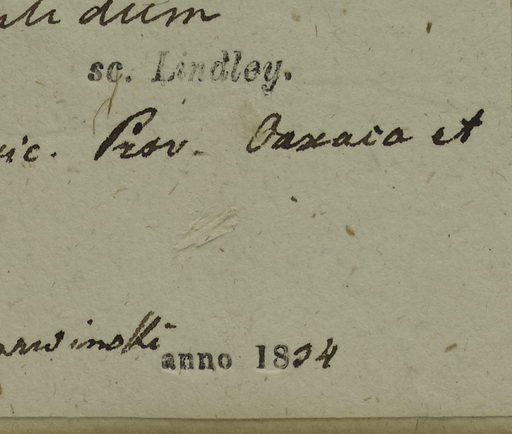 idum
sc. Lindley.
ic. Prov. Oaxaca et
arwinski anno 1834